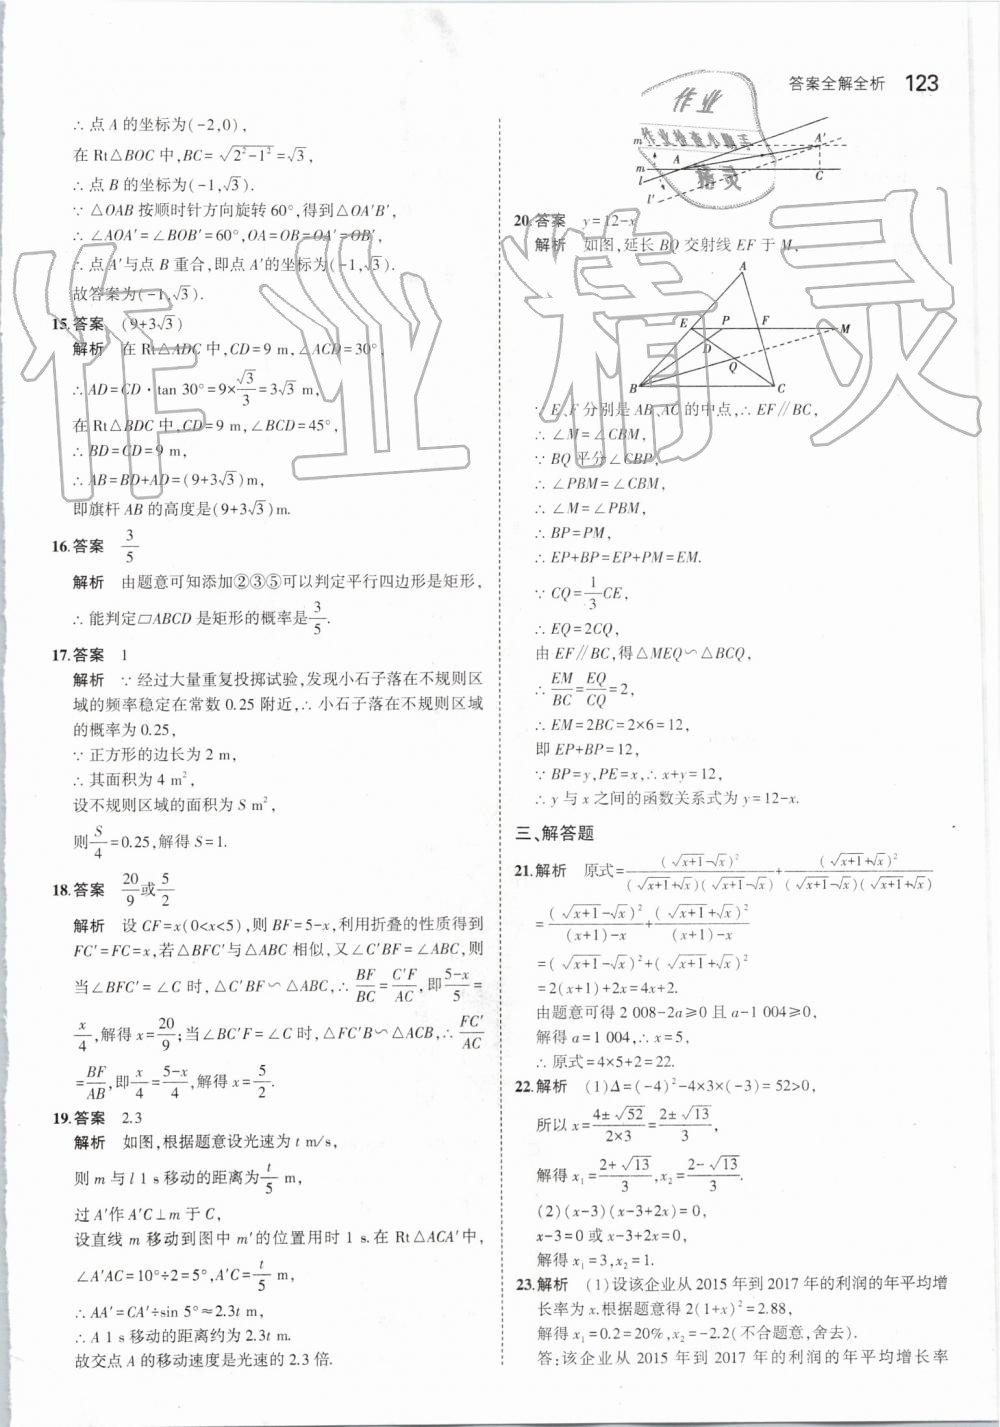 答案全解全析 123
∴点A的坐标为(-2,0),
在Rt△BOC中,BC=√(2²-1²)=√3,
∴点B的坐标为(-1,√3).
∵△OAB按顺时针方向旋转60°,得到△OA'B',
∴∠AOA'=∠BOB'=60°,OA=OB=OA'=OB',
∴点A'与点B重合,即点A'的坐标为(-1,√3).
故答案为(-1,√3).
15.答案 (9+3√3)
解析 在Rt△ADC中,CD=9 m,∠ACD=30°,
∴AD=CD·tan 30°=9×√3/3=3√3 m,
在Rt△BDC中,CD=9 m,∠BCD=45°,
∴BD=CD=9 m,
∴AB=BD+AD=(9+3√3)m,
即旗杆AB的高度是(9+3√3)m.
16.答案 3/5
解析 由题意可知添加②③⑤可以判定平行四边形是矩形,
∴能判定▱ABCD是矩形的概率是3/5.
17.答案 1
解析 ∵经过大量重复投掷试验,发现小石子落在不规则区
域的频率稳定在常数0.25附近,∴小石子落在不规则区域
的概率为0.25,
∵正方形的边长为2 m,
∴其面积为4 m²,
设不规则区域的面积为S m²,
则S/4=0.25,解得S=1.
18.答案 20/9或5/2
解析 设CF=x(0<x<5),则BF=5-x,利用折叠的性质得到
FC'=FC=x,若△BFC'与△ABC相似,又∠C'BF=∠ABC,则
当∠BFC'=∠C时,△C'BF∽△ABC,∴BF/BC=C'F/AC,即(5-x)/5=
x/4,解得x=20/9;当∠BC'F=∠C时,△FC'B∽△ACB,∴FC'/AC
=BF/AB,即x/4=(5-x)/4,解得x=5/2.
19.答案 2.3
解析 如图,根据题意设光速为t m/s,
则m与l 1 s移动的距离为t/5 m,
过A'作A'C⊥m于C,
设直线m移动到图中m'的位置用时1 s.在Rt△ACA'中,
∠A'AC=10°÷2=5°,A'C=t/5 m,
∴AA'=CA'÷sin 5°≈2.3t m,
∴A 1 s移动的距离约为2.3t m.
故交点A的移动速度是光速的2.3倍.
m' A'
m A C
l
l'
20.答案 y=12-x
解析 如图,延长BQ交射线EF于M,
A
E P F M
D
Q
B C
∵E、F分别是AB、AC的中点,∴EF∥BC,
∴∠M=∠CBM,
∵BQ平分∠CBP,
∴∠PBM=∠CBM,
∴∠M=∠PBM,
∴BP=PM,
∴EP+BP=EP+PM=EM.
∵CQ=1/3CE,
∴EQ=2CQ,
由EF∥BC,得△MEQ∽△BCQ,
∴EM/BC=EQ/CQ=2,
∴EM=2BC=2×6=12,
即EP+BP=12,
∵BP=y,PE=x,∴x+y=12,
∴y与x之间的函数关系式为y=12-x.
三、解答题
21.解析 原式=(√(x+1)-√x)²/((√(x+1)+√x)(√(x+1)-√x))+(√(x+1)+√x)²/((√(x+1)-√x)(√(x+1)+√x))
=(√(x+1)-√x)²/((x+1)-x)+(√(x+1)+√x)²/((x+1)-x)
=(√(x+1)-√x)²+(√(x+1)+√x)²
=2(x+1)+2x=4x+2.
由题意可得2 008-2a≥0且a-1 004≥0,
解得a=1 004,∴x=5,
∴原式=4×5+2=22.
22.解析 (1)Δ=(-4)²-4×3×(-3)=52>0,
所以x=(4±√52)/(2×3)=(2±√13)/3,
解得x₁=(2+√13)/3,x₂=(2-√13)/3.
(2)(x-3)(x-3+2x)=0,
x-3=0或x-3+2x=0,
解得x₁=3,x₂=1.
23.解析 (1)设该企业从2015年到2017年的利润的年平均增
长率为x.根据题意得2(1+x)²=2.88,
解得x₁=0.2=20%,x₂=-2.2(不合题意,舍去).
答:该企业从2015年到2017年的利润的年平均增长率
作业
作业检查小助手
精灵
作业精灵